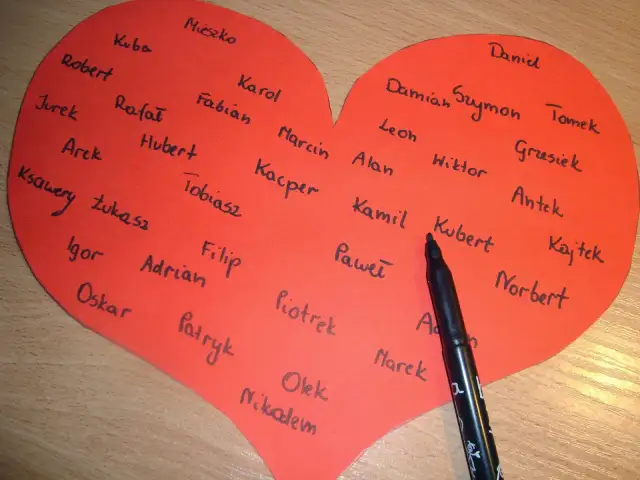 Mieszko
Kuba
Daniel
Robert
Karol
Damian
Szymon
Tomek
Jurek
Rafał
Fabian
Leon
Grzesiek
Marcin
Arek
Hubert
Kacper
Alan
Wiktor
Ksawery
Łukasz
Tobiasz
Kamil
Antek
Kubert
Kajtek
Igor
Adrian
Filip
Paweł
Norbert
Oskar
Patryk
Piotrek
Marek
Olek
Nikodem